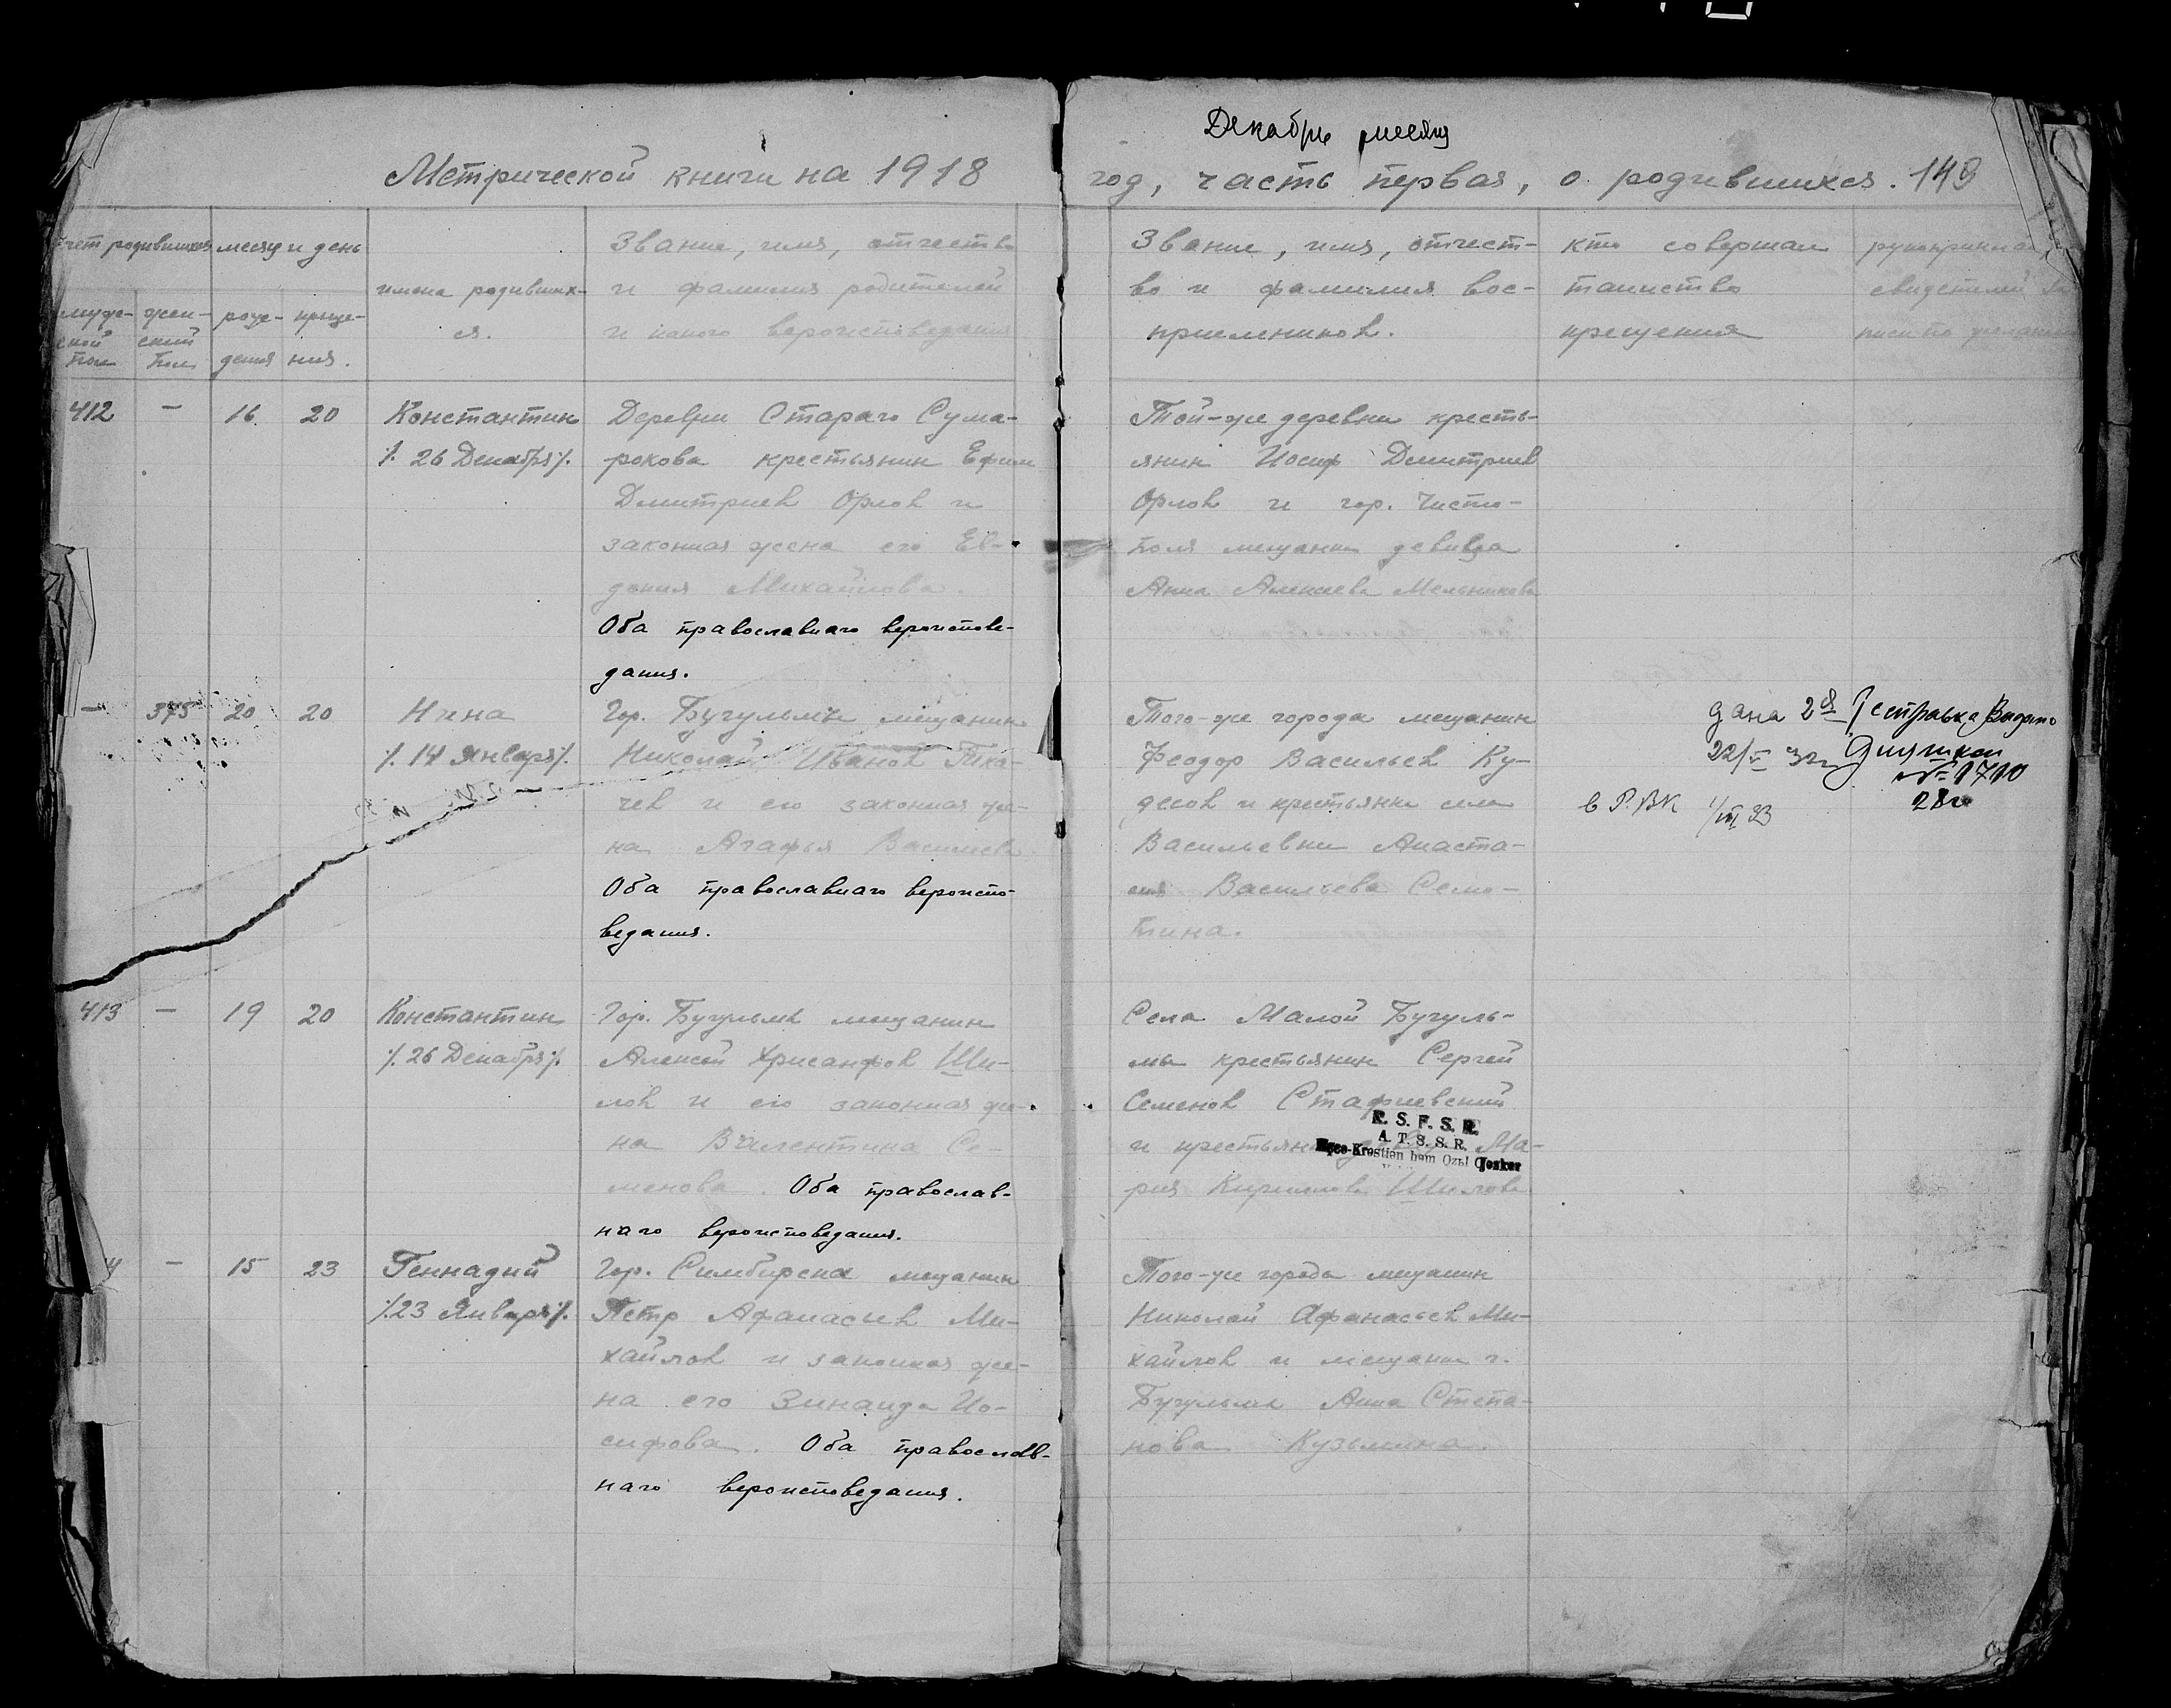 Декабрь месяц
Метрической книги на 1918 год, часть первая, о родившихся. 148
счет родившихся
месяц и день
мужеской пол
женский пол
рождения
крещения.
имена родивших-
ся.
Звание, имя, отчество
и фамилия родителей
и какого вероисповедания
Звание, имя, отчест-
во и фамилия вос-
приемников.
кто совершал
таинство
крещения
свидетелей
412 — 16 20
Константин
% 26 Декабря %
Деревни Стараго Сума-
рокова крестьянин Ефим
Дмитриев Орлов и
законная жена его Ев-
докия Михайлова.
Оба православнаго вероиспове-
дания.
Той-же деревни кресть-
янин Иосиф Димитриев
Орлов и гор. Чисто-
поля мещанка девица
Анна Алексеева Мельникова
— 375 20 20
Нина
% 14 Января %
Гор. Бугульмы мещанин
Николай Иванов Тка-
чев и его законная же-
на Агафья Васильева
Оба православнаго вероиспо-
ведания.
Того-же города мещанин
Феодор Васильев Ку-
десов и крестьянка села
Васильевки Анаста-
сия Васильева Семо-
тина.
дана 2я справка
22/V 32г
№ 1710
28г
в Р.ВК 1/III 33
413 — 19 20
Константин
% 26 Декабря %
Гор. Бугульмы мещанин
Алексей Хрисанфов Ши-
лов и его законная же-
на Валентина Се-
менова. Оба православ-
наго вероисповедания.
Села Малой Бугуль-
мы крестьянин Сергей
Семенов Стафиевский
и крестьянка Ма-
рия Кириллова Шилова
R. S. F. S. R.
A. T. S. S. R.
4 — 15 23
Геннадий
% 23 Января %
Гор. Симбирска мещанин
Петр Афанасьев Ми-
хайлов и законная же-
на его Зинаида Ио-
сифова. Оба православ-
наго вероисповедания.
Того-же города мещанин
Николай Афанасьев Ми-
хайлов и мещанка г.
Бугульмы Анна Степа-
нова Кузьмина.